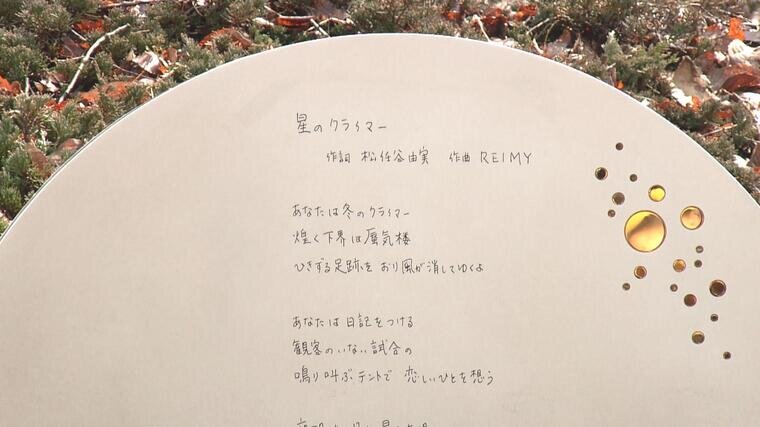 星のクライマー
作詞 松任谷由実 作曲 REIMY
あなたは冬のクライマー
煌く下界は蜃気楼
ひきずる足跡を おり風が消してゆくよ
あなたは日記をつける
観客のいない試合の
鳴り叫ぶテントで 恋しいひとを想う